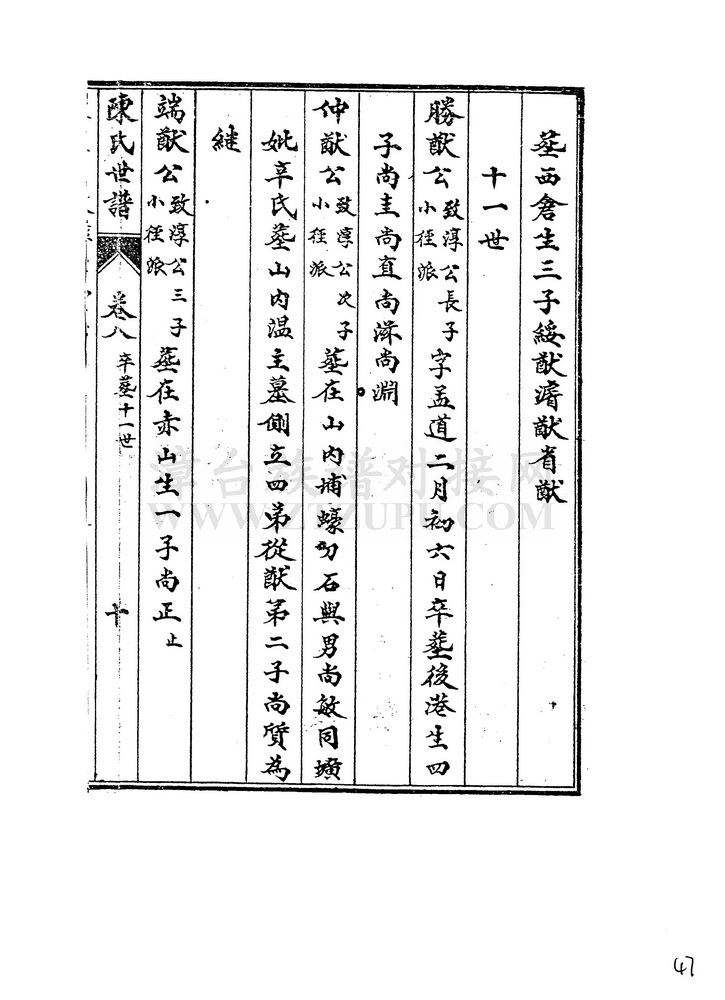 塟西倉生三子綏猷濬猷省猷
十一世
勝猷公致淳公長子小徑派字孟道二月初六日卒塟後港生四
子尚圭尚直尚濚尚淵
仲猷公致淳公次子小徑派塟在山内埔蠔仞石與男尚敏同壙
妣辛氏塟山内温主墓側立四弟從猷第二子尚質為
継
端猷公致淳公三子小徑派塟在赤山生一子尚正止
陳氏世譜 卷八 卒塟十一世 十
漳台族谱对接网
WWW.ZTZUPU.COM
47